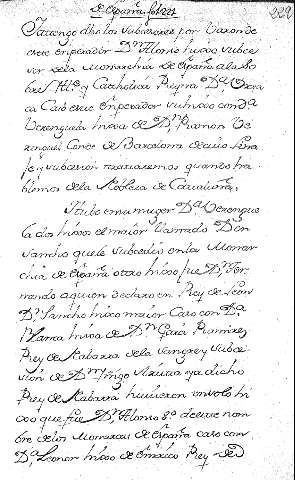 de España. fol. 221
222
Tatengo dho los subcesores por Varon de
este enperador Dⁿ Alonso hixos subce
sor dela Monarchia de España ala Ilo
bre Alto y Catholica Reyna Dª Vrra
ca Caso este enperador su hixo con dª
Verenguela hixa de Dⁿ Ramon Ve
renguel Conde de Barcelona de cuio lina
je y subcesion trataremos quando ha
blemos dela Nobleza de Cataluña,
Hubo en su muger Dª Verengue
la dos hixos el maior llamado Don
Sancho que le subcedio en la Monar
chia de España otro hixo fue Dⁿ Fer
nando a quien declaro en Rey de Leon
Dⁿ Sancho hixo maior Caso con Dª
Blanca hixa de Dⁿ Garzi Ramirez
Rey de Nabarra dela sangre y subce
sion de Dⁿ Iñigo Arista ya dicho
Rey de Nabarra huuieron un solo hi
xo que fue Dⁿ Alonso 8º de este non
bre de los Monarcas de España caso con
Dª Leonor hixa de Enrico Rey de